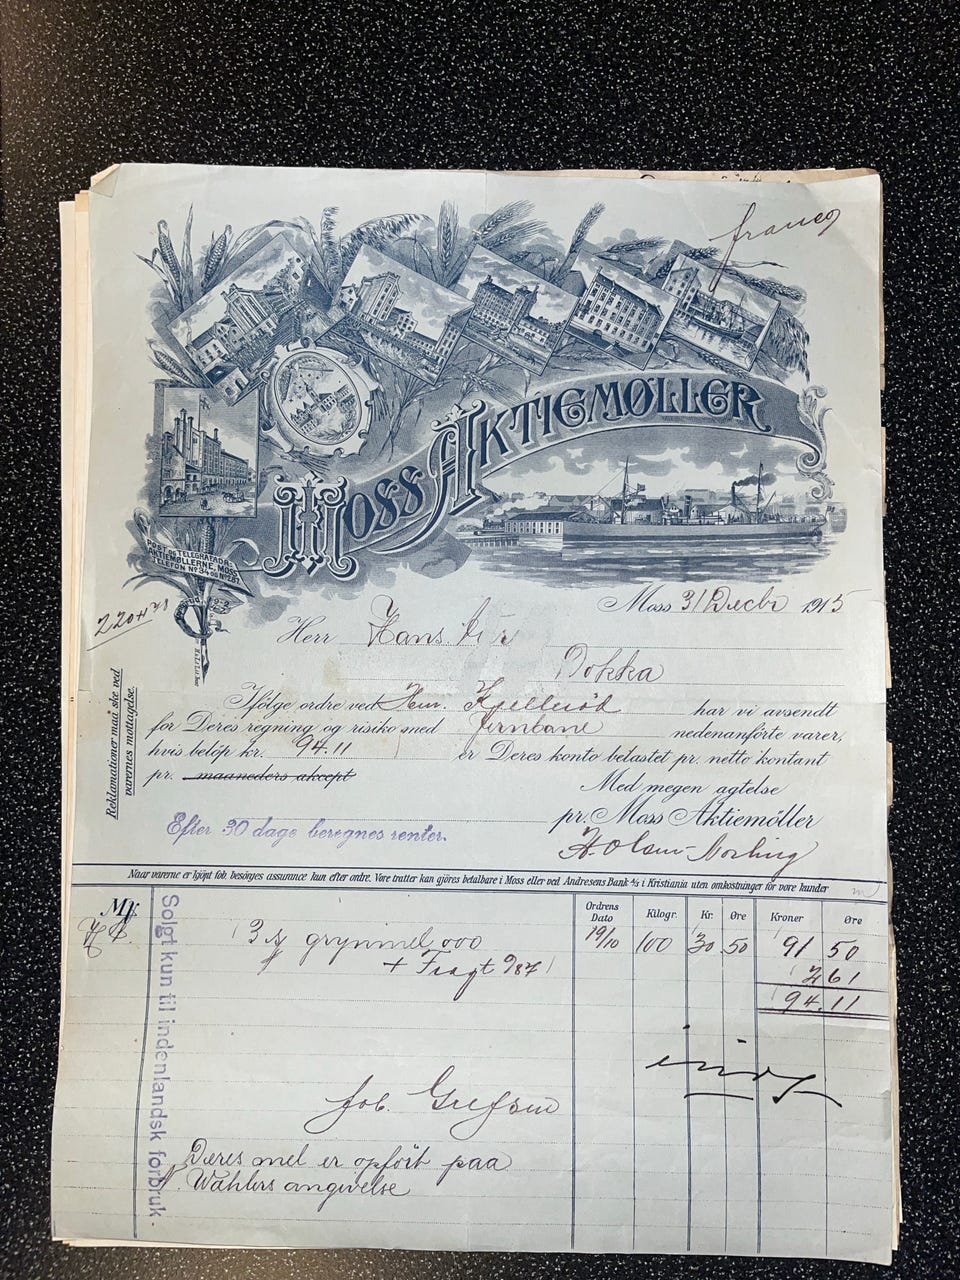 franco
MOSS AKTIEMØLLER
POST OG TELEGRAFADR.
AKTIEMØLLERNE, MOSS
TELEFON No 34 OG No 287.
Moss 31 Decbr 1915
Herr Hans
Dokka
Ifølge ordre ved Hr. har vi avsendt
for Deres regning og risiko med Jernbane nedenanförte varer,
hvis belöp kr. 94.11 er Deres konto belastet pr. netto kontant
pr. maaneders akcept
Med megen agtelse
pr. Moss Aktiemöller
H. Olsen
Reklamationer maa ske ved
varernes mottagelse.
Efter 30 dage beregnes renter.
Naar varerne er kjöpt fob, besörges assurance kun efter ordre. Vore tratter kan gjöres betalbare i Moss eller ved Andresens Bank A/S i Kristiania uten omkostninger for vore kunder
My.
Ordrens Dato Kilogr. Kr. Øre Kroner Øre
3 grynmel 000 19/10 100 30 50 91 50
+ Fragt 2 61
94.11
Solgt kun til indenlandsk forbruk.
fob. Grefsen
Deres mel er opfört paa
angivelse